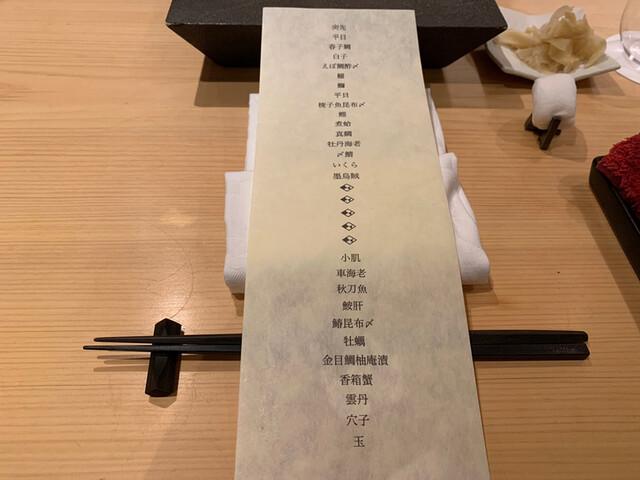 突先
平目
春子鯛
白子
えぼ鯛酢〆
平貝
梭子魚昆布〆
煮蛤
真鯛
牡丹海老
〆鯖
いくら
墨烏賊
小肌
車海老
秋刀魚
鮟肝
鰆昆布〆
牡蠣
金目鯛柚庵漬
香箱蟹
雲丹
穴子
玉